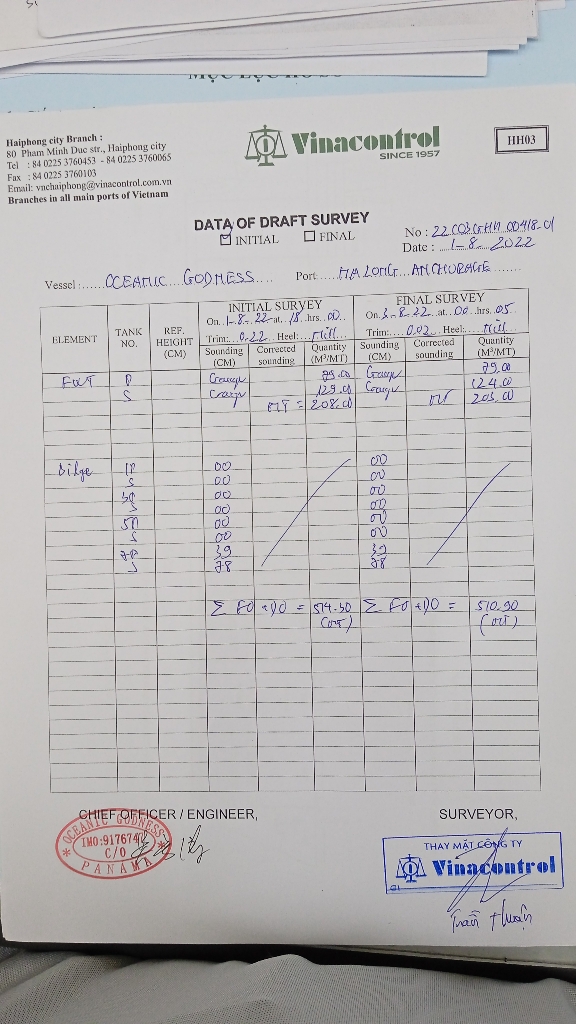 Haiphong city Branch :
80 Pham Minh Duc str., Haiphong city
Tel : 84 0225 3760453 - 84 0225 3760065
Fax : 84 0225 3760103
Email: vnchaiphong@vinacontrol.com.vn
Branches in all main ports of Vietnam
Vinacontrol
SINCE 1957
HH03
DATA OF DRAFT SURVEY
☑ INITIAL ☐ FINAL
No :
Date : 1-8-2022
Vessel : OCEANIC GODNESS Port HALONG ANCHORAGE
ELEMENT TANK NO. REF. HEIGHT (CM)
INITIAL SURVEY
On 1-8-22 at 18 hrs 00
Trim: 0.22 Heel:
Sounding (CM) Corrected sounding Quantity (M³/MT)
FINAL SURVEY
On 3-8-22 at 00 hrs 05
Trim: 0.02 Heel:
Sounding (CM) Corrected sounding Quantity (M³/MT)
P 79.00 79.00
S 129.00 124.00
= 208.00 203.00
Bilge 1P 00 00
S 00 00
3P 00 00
S 00 00
5P 00 00
S 00 00
7P 39 39
S 78 78
Σ FO + DO = 514.30 Σ FO + DO = 510.90
CHIEF OFFICER / ENGINEER,
SURVEYOR,
OCEANIC GODNESS
IMO:9176747
C/O
PANAMA
THAY MẶT CÔNG TY
Vinacontrol
Trần Thuận